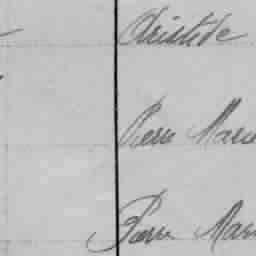 Aristide
Pierre Marie
Pierre Mari